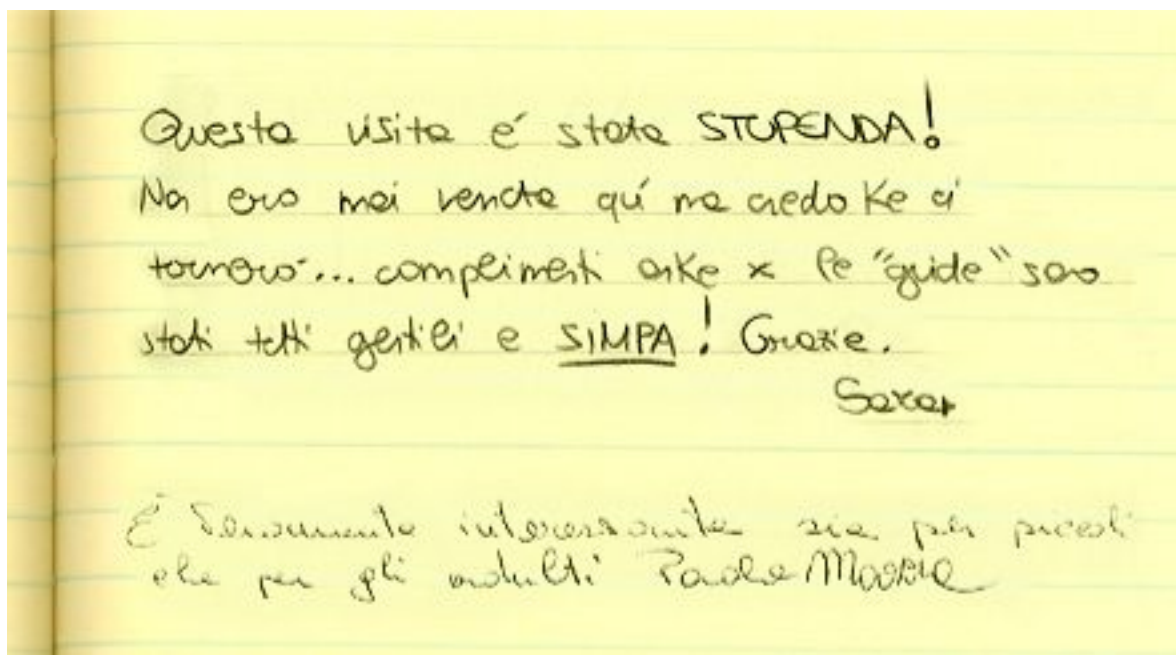 Questa visita é stata STUPENDA!
Non ero mai venuta quí ma credo ke ci
tornerò... complimenti anke x le "guide" sono
stati tutti gentili e SIMPA! Grazie.
Sara
È veramente interessante sia per piccoli
che per gli adulti Paola